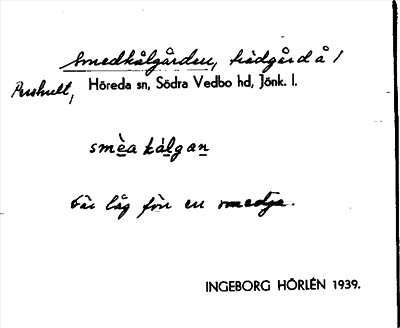 Smedkålgården, trädgård å 1
Pershult, Höreda sn, Södra Vedbo hd, Jönk. l.
smèa kálgan
där låg förr en smedja.
INGEBORG HÖRLÉN 1939.